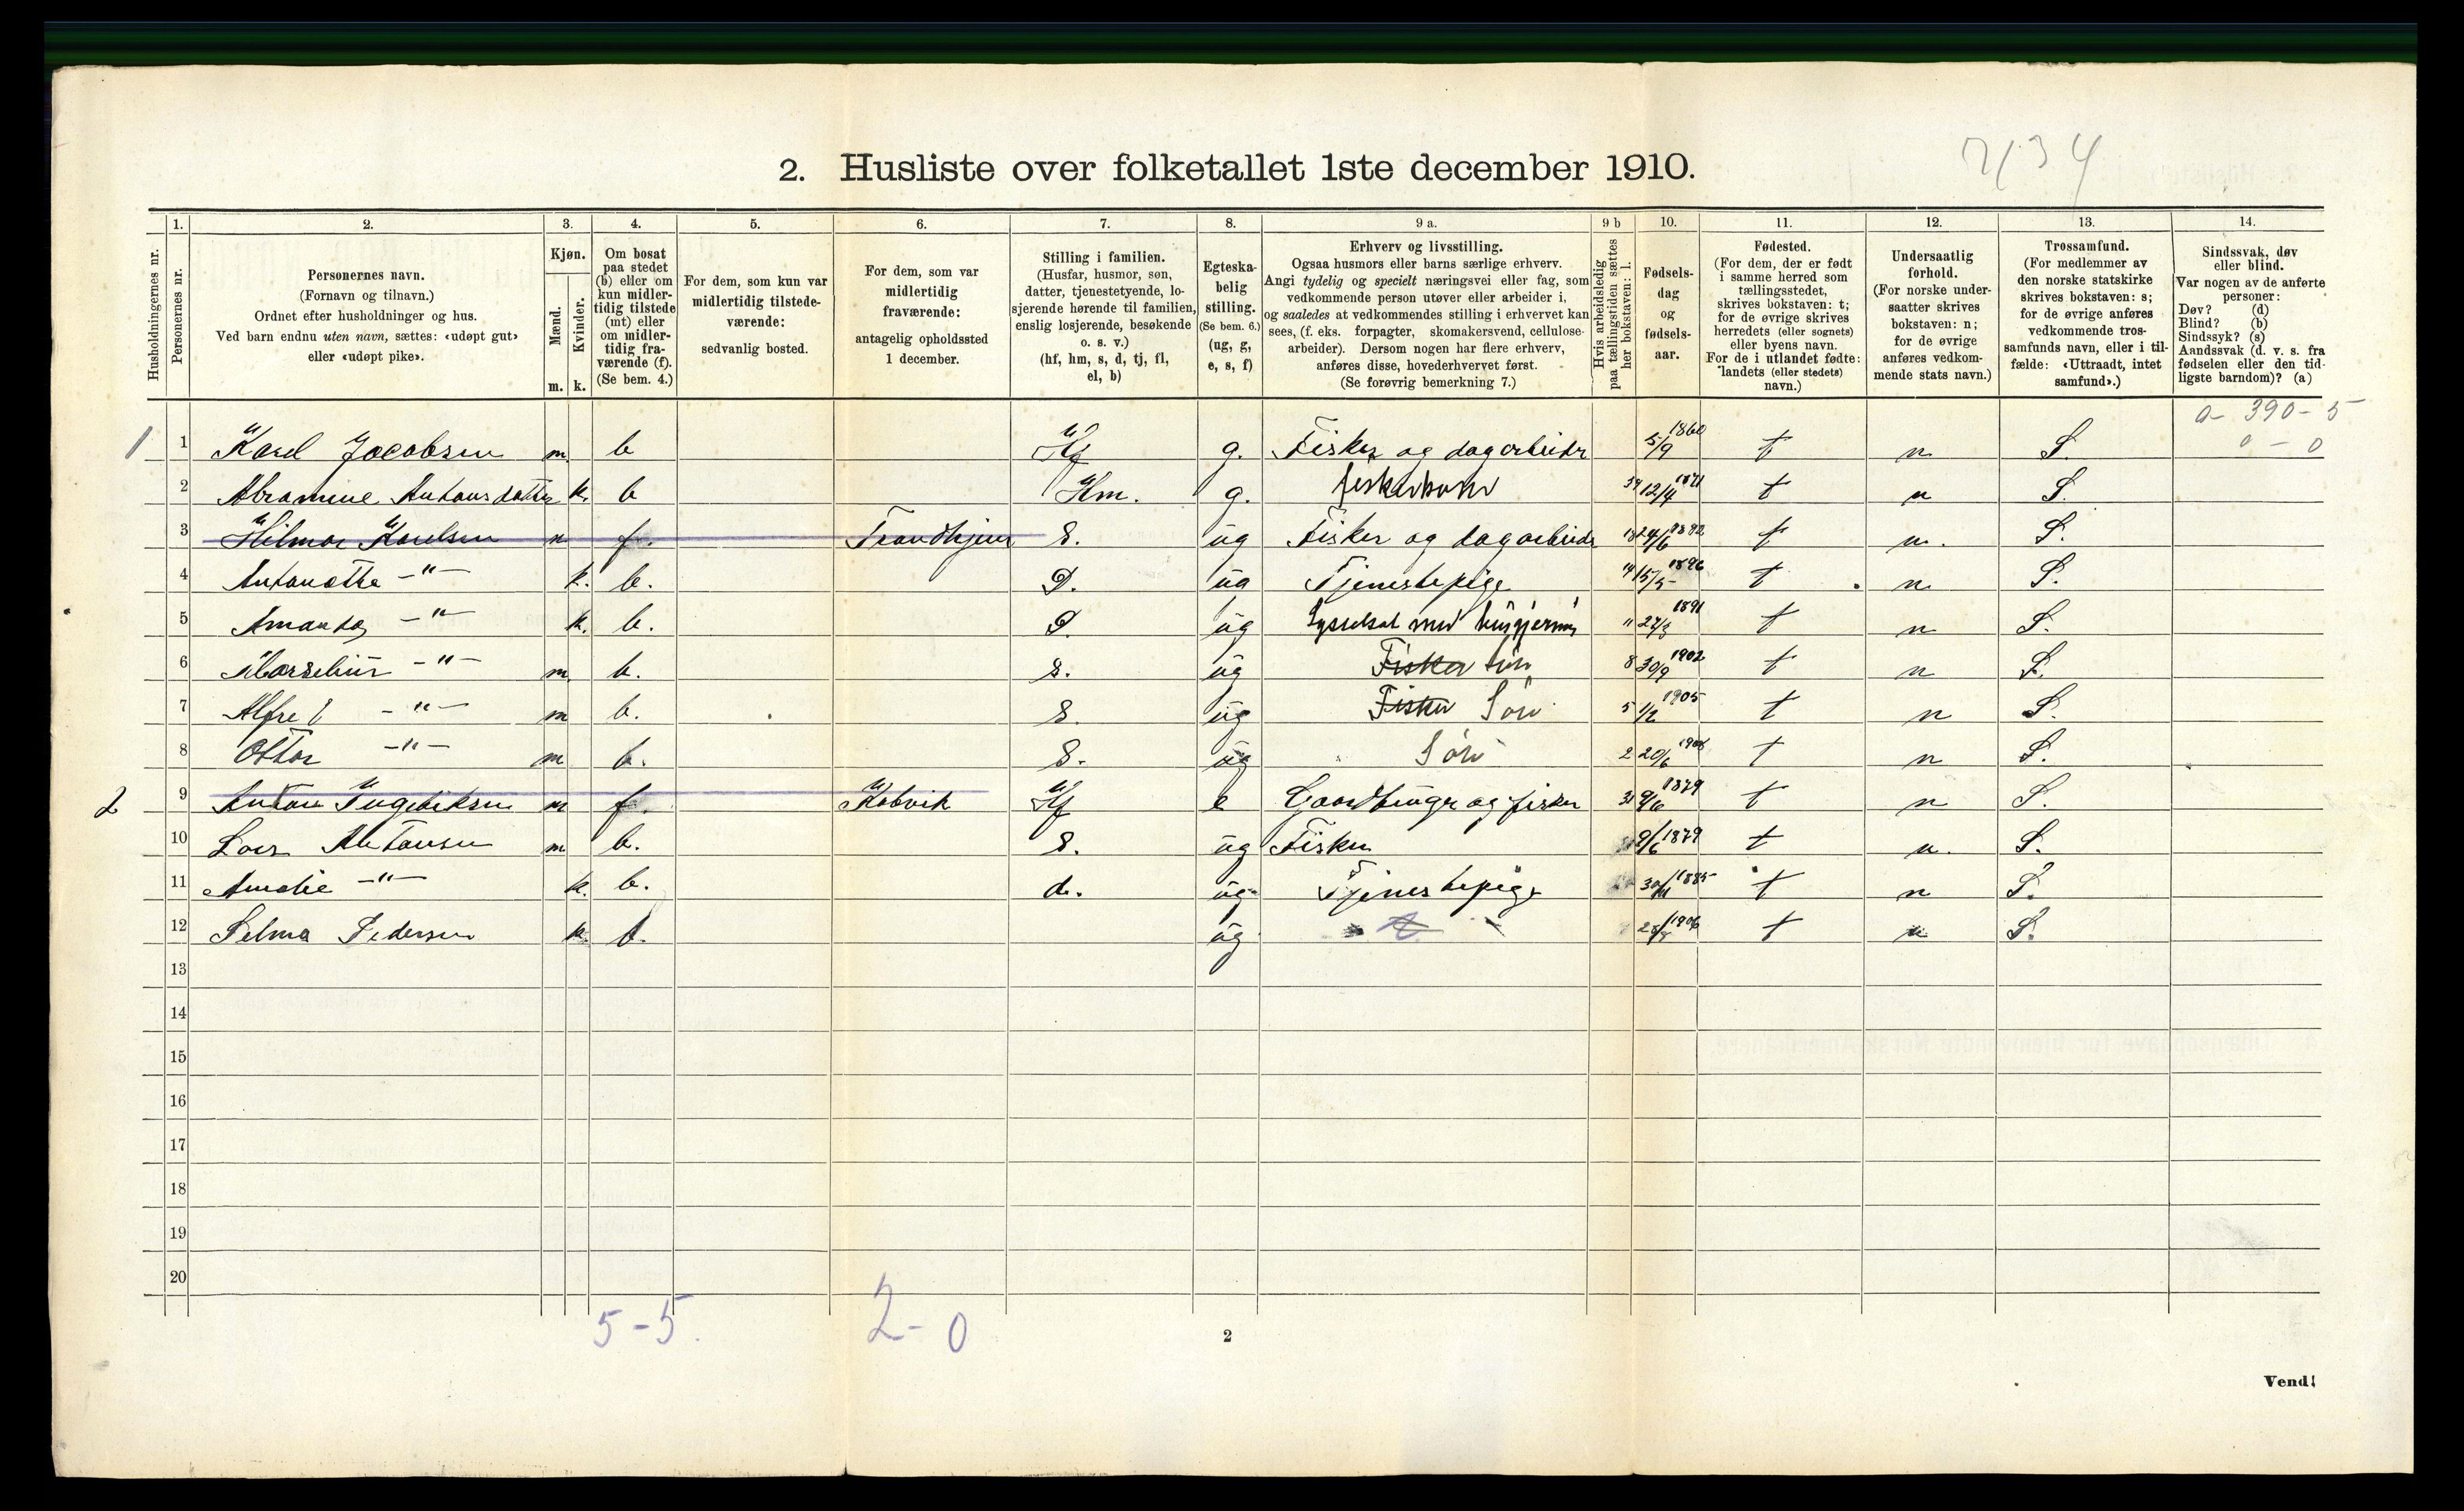 2134
2. Husliste over folketallet 1ste december 1910.
Husholdningernes nr.
1. Personernes nr.
2. Personernes navn.
(Fornavn og tilnavn.)
Ordnet efter husholdninger og hus.
Ved barn endnu uten navn, sættes: «udøpt gut»
eller «udøpt pike».
3. Kjøn.
Mænd. m.
Kvinder. k.
4. Om bosat
paa stedet
(b) eller om
kun midler-
tidig tilstede
(mt) eller
om midler-
tidig fra-
værende (f).
(Se bem. 4.)
5. For dem, som kun var
midlertidig tilstede-
værende:
sedvanlig bosted.
6. For dem, som var
midlertidig
fraværende:
antagelig opholdssted
1 december.
7. Stilling i familien.
(Husfar, husmor, søn,
datter, tjenestetyende, lo-
sjerende hørende til familien,
enslig losjerende, besøkende
o. s. v.)
(hf, hm, s, d, tj, fl,
el, b)
8. Egteska-
belig
stilling.
(Se bem. 6.)
(ug, g,
e, s, f)
9 a. Erhverv og livsstilling.
Ogsaa husmors eller barns særlige erhverv.
Angi tydelig og specielt næringsvei eller fag, som
vedkommende person utøver eller arbeider i,
og saaledes at vedkommendes stilling i erhvervet kan
sees, (f. eks. forpagter, skomakersvend, cellulose-
arbeider). Dersom nogen har flere erhverv,
anføres disse, hovederhvervet først.
(Se forøvrig bemerkning 7.)
9 b Hvis arbeidsledig
paa tællingstiden sættes
her bokstaven: l.
10. Fødsels-
dag
og
fødsels-
aar.
11. Fødested.
(For dem, der er født
i samme herred som
tællingsstedet,
skrives bokstaven: t;
for de øvrige skrives
herredets (eller sognets)
eller byens navn.
For de i utlandet fødte:
landets (eller stedets)
navn.)
12. Undersaatlig
forhold.
(For norske under-
saatter skrives
bokstaven: n;
for de øvrige
anføres vedkom-
mende stats navn.)
13. Trossamfund.
(For medlemmer av
den norske statskirke
skrives bokstaven: s;
for de øvrige anføres
vedkommende tros-
samfunds navn, eller i til-
fælde: «Uttraadt, intet
samfund».)
14. Sindssvak, døv
eller blind.
Var nogen av de anførte
personer:
Døv? (d)
Blind? (b)
Sindssyk? (s)
Aandssvak (d. v. s. fra
fødselen eller den tid-
ligste barndom)? (a)
0 - 390 - 5
0 - 0
1 1 Karel Jacobsen m. b Hf g. Fisker og dagarbeider 5/9 1860 t n S.
2 Abramine Antonsdatter k. b Hm. g. fiskerkone 39 12/4 1871 t n S.
3 Hilmar Karelsen m f. Trondhjem S. ug Fisker og dagarbeider 18 24/6 1892 t n. S.
4 Antonette -"- k. b. D. ug Tjenestepige 14 15/5 1896 t n S.
5 Amanda -"- k. b. D. ug Sysselsat med husgjerning 11 27/3 t n S.
6 -"- m. b. s. ug Fisker søn 8 30/9 1902 t n S.
7 Alfred -"- m b. S. ug Fisker Søn 5 1/2 1905 t n S.
8 Ottar -"- m b. S. ug Søn 2 20/6 1908 t n S.
2 9 Anton Ingebriktsen m f. Hf e Gaardbruger og fisker t n S.
10 Antonsen m b. S. ug Fisker 9/6 1879 t n. S.
11 Amalie -"- k. b. d. ug Tjenestepige 30/11 1885 t n S.
12 Selma Pedersen k. b. ug 1906 t n S.
13
14
15
16
17
18
19
20
5-5. 2-0
2
Vend!